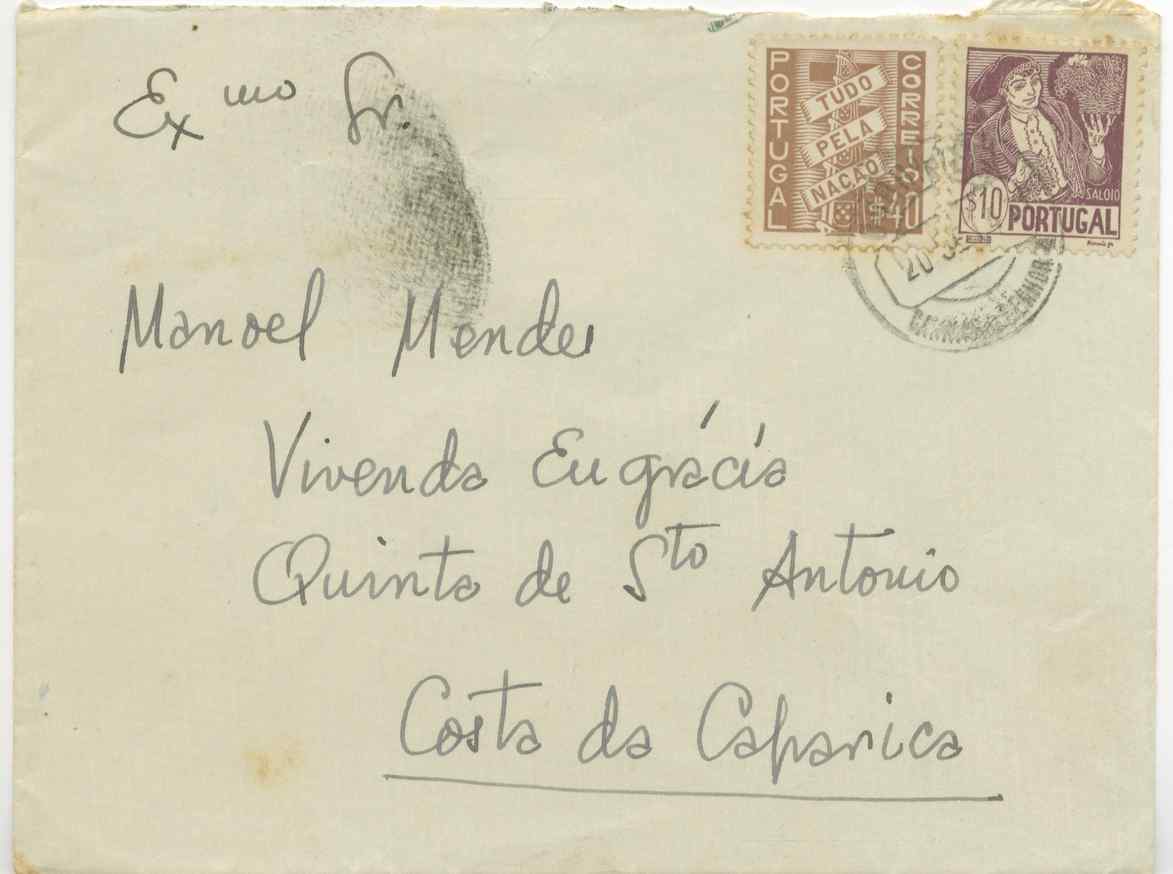 Exmo Sr.
Manoel Mendes
Vivenda Eugrácía
Quinta de Sto Antonio
Costa da Caparica
PORTUGAL
CORREIO
TUDO
PELA
NAÇÃO
$40
SALOIO
$10
PORTUGAL
20